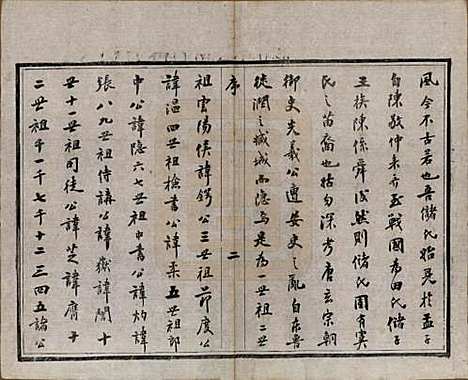 風今不古若也吾儲氏始見於孟子
自陳敬仲来齐至戰國為田氏儲子
王侯陳係舜後然則儲氏固有虞
氏之苗裔也姑勿深考唐玄宗朝
御史光羲公遭安史之亂自東魯
徙潤之城而隱焉是為一世祖二世
序
二
祖雲陽侯諱鍔公三世祖節度公
諱温四世祖檢書公諱秉五世祖郎
中公諱隱六七世祖中書公諱灼諱
張八九世祖侍講公諱嶽諱聞十
世十一世祖司徒公諱芝諱膺十
二世祖千一千七千十二三四五諭公